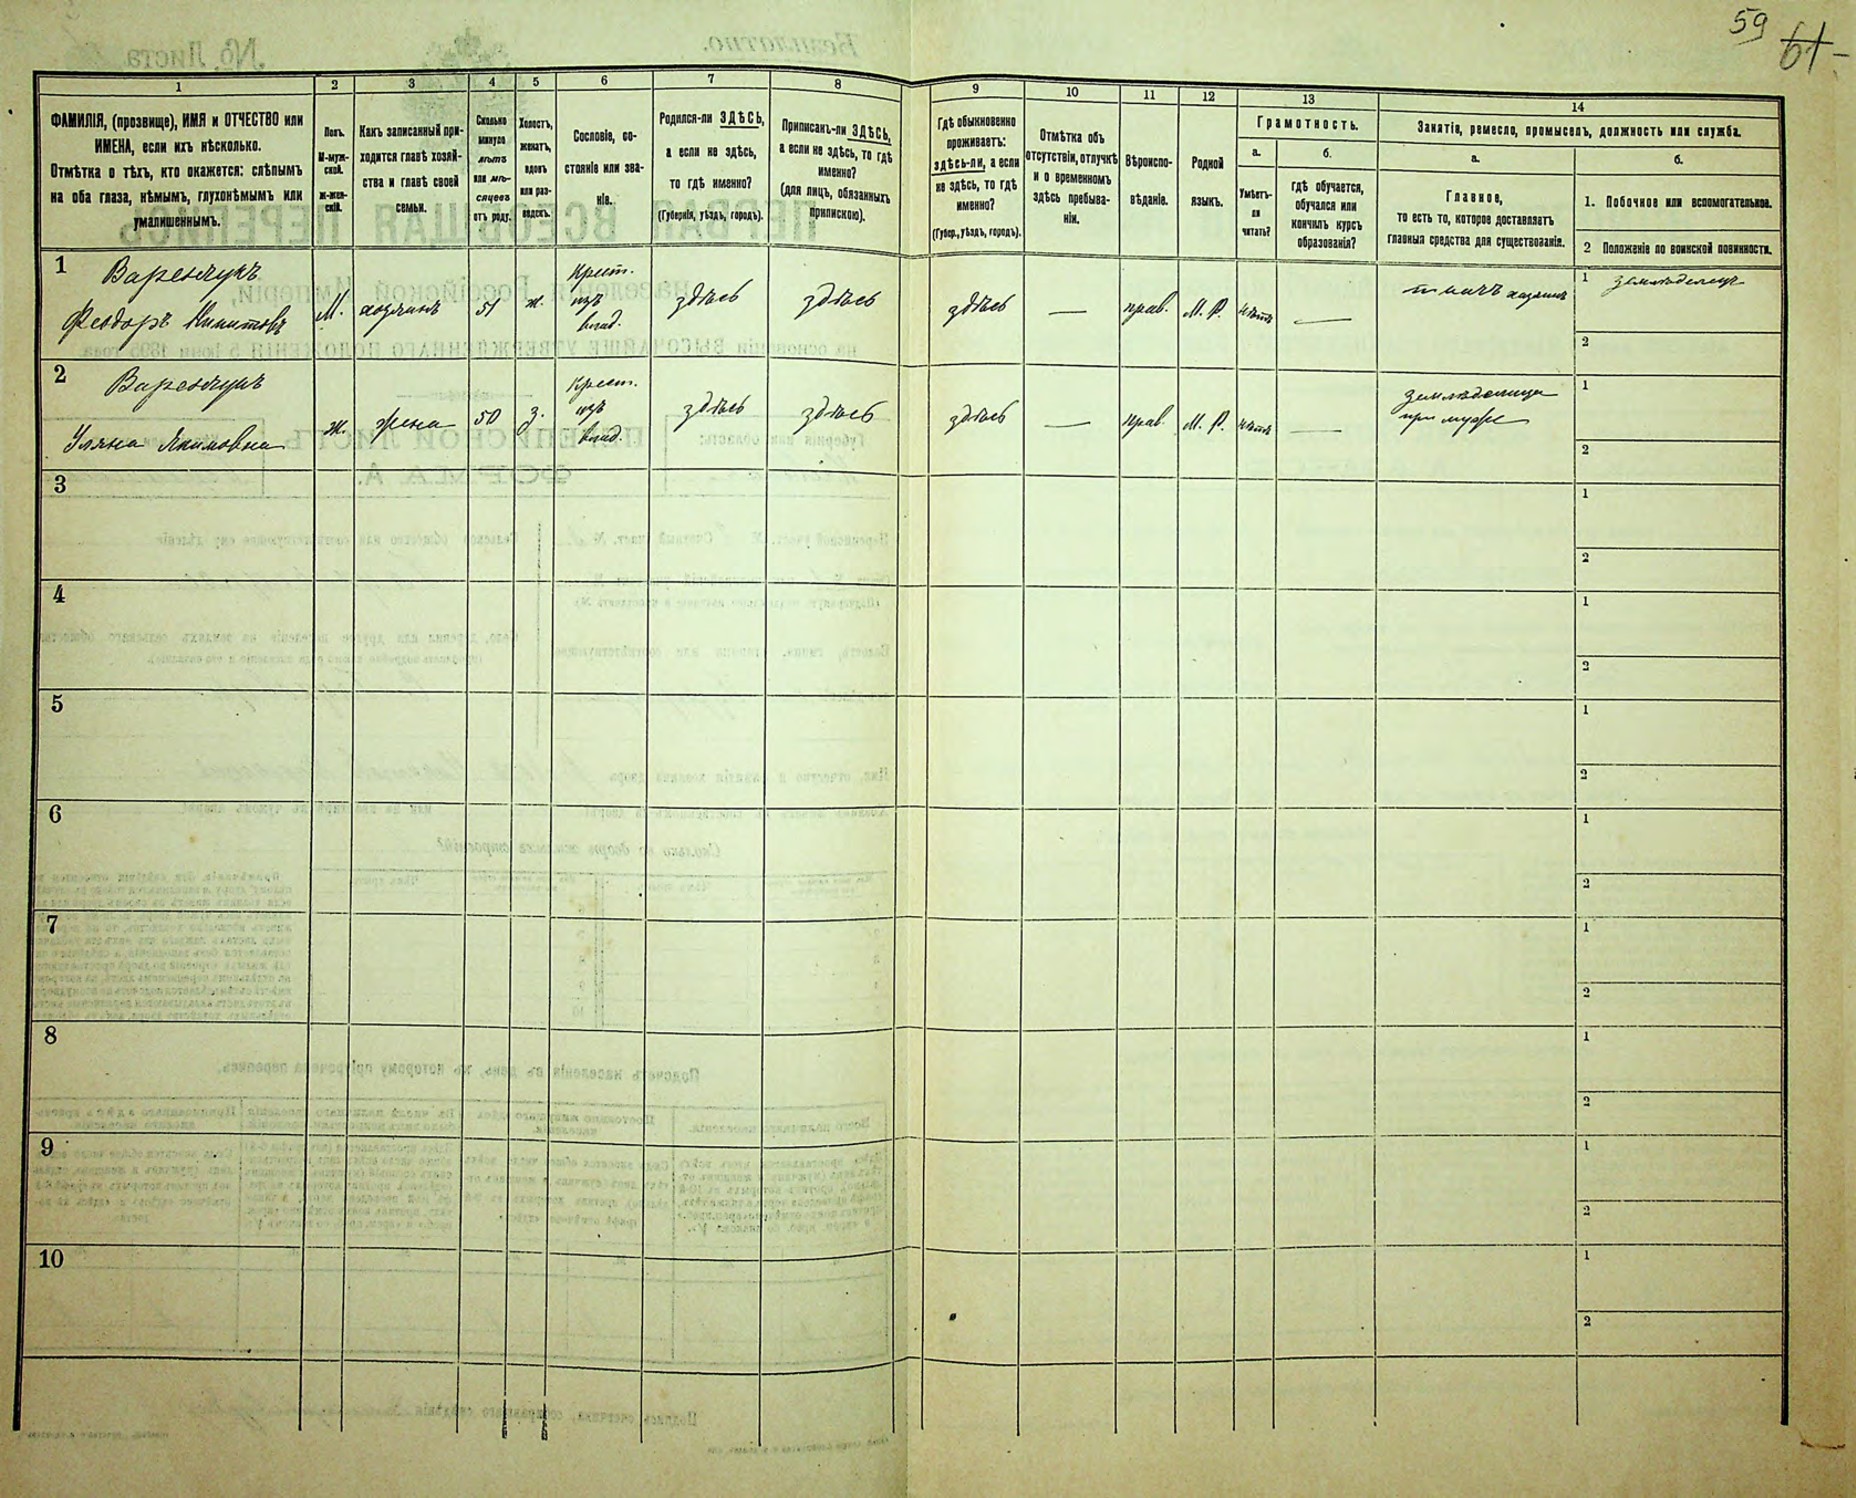 59 61
1 2 3 4 5 6 7 8 9 10 11 12 13 14
ФАМИЛІЯ, (прозвище), ИМЯ и ОТЧЕСТВО или
ИМЕНА, если ихъ нѣсколько.
Отмѣтка о тѣхъ, кто окажется: слѣпымъ
на оба глаза, нѣмымъ, глухонѣмымъ или
умалишеннымъ.
Полъ.
М-муж-
ской.
ж-жен-
скій.
Какъ записанный при-
ходится главѣ хозяй-
ства и главѣ своей
семьи.
Сколько
минуло
лѣтъ
или мѣ-
сяцевъ
отъ роду.
Холостъ,
женатъ,
вдовъ
или раз-
веденъ.
Сословіе, со-
стояніе или зва-
ніе.
Родился-ли ЗДѢСЬ,
а если не здѣсь,
то гдѣ именно?
(Губернія, уѣздъ, городъ).
Приписанъ-ли ЗДѢСЬ,
а если не здѣсь, то гдѣ
именно?
(для лицъ, обязанныхъ
припискою).
Гдѣ обыкновенно
проживаетъ:
здѣсь-ли, а если
не здѣсь, то гдѣ
именно?
(Губер., уѣздъ, городъ).
Отмѣтка объ
отсутствіи, отлучкѣ
и о временномъ
здѣсь пребыва-
ніи.
Вѣроиспо-
вѣданіе.
Родной
языкъ.
Грамотность.
а.
Умѣетъ-
ли
читать?
б.
Гдѣ обучается,
обучался или
кончилъ курсъ
образованія?
Занятіе, ремесло, промыселъ, должность или служба.
а.
Главное,
то есть то, которое доставляетъ
главныя средства для существованія.
б.
1. Побочное или вспомогательное.
2 Положеніе по воинской повинности.
1 Варенчукъ
Феодоръ Никитовъ М. хозяинъ 51 ж. Крест. изъ влад. здѣсь здѣсь здѣсь — прав. М. Р. нѣтъ — хозяинъ 1 земледелецъ
2
2 Варенчукъ
Уляна Якимовна ж. жена 50 з. Крест. изъ влад. здѣсь здѣсь здѣсь — прав. М. Р. нѣтъ — земледелица
при муже
1
2
3 1
2
4 1
2
5 1
2
6 1
2
7 1
2
8 1
2
9 1
2
10 1
2